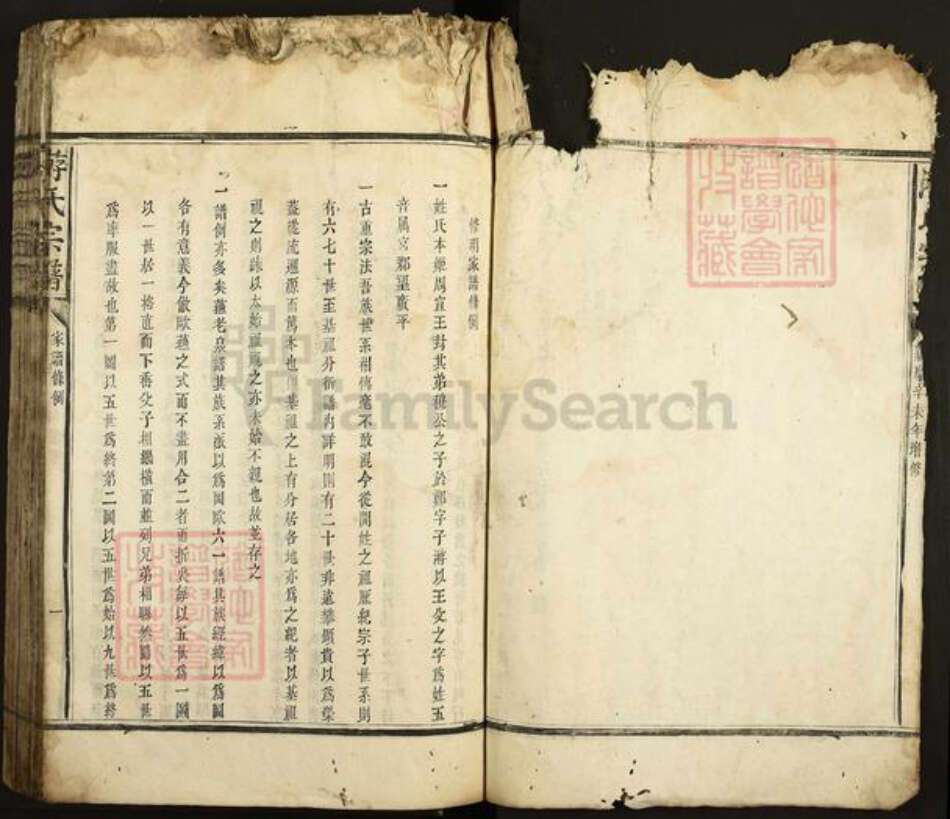 辛未年增修
修明家譜條例
一姓氏本姬周宣王封其弟 公之子於鄭字子游以王父之字爲姓五
音属宮郡望廣平
一古重宗法吾族世系相傳毫不敢混今從開姓之祖歷紀宗子世系則
有六七十世至基祖分衍譜內詳明則有二十世非遠攀顯貴以爲榮
蓋從流遡源而篤本也 基祖之上有分居各地亦爲之紀者以基祖
視之則疎以太始祖視之亦未始不親也故並存之
一譜例亦多矣蘓老泉譜其族系派以爲圖歐六一譜其族經緯以爲圖
各有意義今倣歐蘓之式而不盡用合二者而折衷每以五世爲一圖
以一世於一格直而下垂父子相繼橫而並列兄弟相聯然圖以五世
爲率服盡故也第一圖以五世爲終第二圖以五世爲始以九世爲終
游氏宗譜
家譜條例
一
譜學會
收藏
FamilySearch